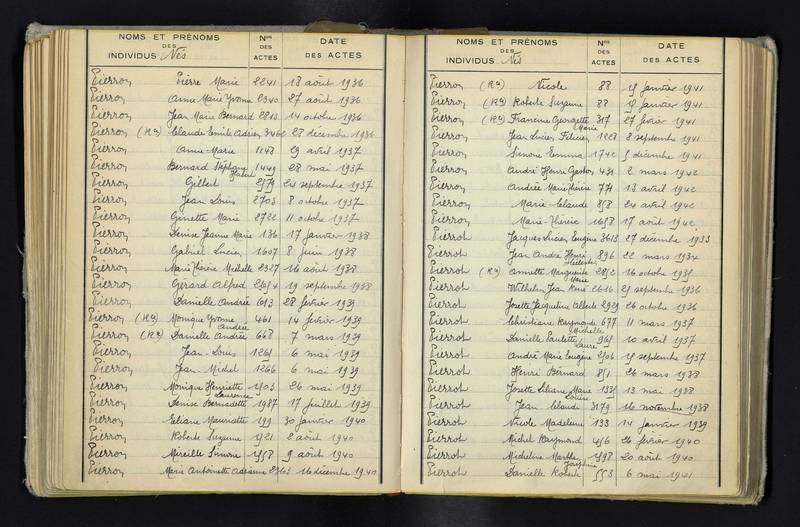 NOMS ET PRÉNOMS DES INDIVIDUS Nés Nos DES ACTES DATE DES ACTES
Pierron Pierre Marie 2241 18 août 1936
Pierron Anne Marie Yvonne 2340 27 août 1936
Pierron Jean Marie Bernard 2813 14 octobre 1936
Pierron (Ra) Claude Emile Adrien 28 décembre 1936
Pierron Anne-Marie 1148 29 avril 1937
Pierron Bernard Stéphane 1449 28 mai 1937
Pierron Gilbert 2579 24 septembre 1937
Pierron Jean Louis 2703 8 octobre 1937
Pierron Ginette Marie 2722 11 octobre 1937
Pierron Denise Jeanne Marie 136 17 janvier 1938
Pierron Gabriel Lucien 1607 8 juin 1938
Pierron Marie Thérèse Michelle 2327 16 août 1938
Pierron Gérard Alfred 19 septembre 1938
Pierron Danielle Andrée 613 28 février 1939
Pierron (Ra) Monique Yvonne 461 14 février 1939
Pierron (Ra) Danielle Andrée Andrée 668 7 mars 1939
Pierron Jean-Louis 1265 6 mai 1939
Pierron Jean-Michel 1266 6 mai 1939
Pierron Monique Henriette 1503 26 mai 1939
Pierron Denise Bernadette Laurence 1987 17 juillet 1939
Pierron Eliane Mauricette 199 30 janvier 1940
Pierron Roberte Suzanne 1521 2 août 1940
Pierron Mireille Simone 1558 9 août 1940
Pierron Marie Antoinette 16 décembre 1940
NOMS ET PRÉNOMS DES INDIVIDUS Nés Nos DES ACTES DATE DES ACTES
Pierron (Ra) Nicole 88 janvier 1941
Pierron (Ra) Roberte Suzanne 88 janvier 1941
Pierron (Ra) Francine Georgette 317 27 février 1941
Pierron Jean Lucien Félicien Marie 1228 8 septembre 1941
Pierron Simone Emma 1742 5 décembre 1941
Pierron André Henri Gaston 431 2 mars 1942
Pierron Andrée Marie Thérèse 771 13 avril 1942
Pierron Marie-Claude 858 24 avril 1942
Pierron Marie-Thérèse 1658 17 août 1942
Pierrot Jacques Lucien Eugène 3613 27 décembre 1933
Pierrot Jean André Henri 896 22 mars 1934
Pierrot (Ra) Annette Marguerite 16 octobre 1935
Pierrot Wilhelm Jean René 2616 25 septembre 1936
Pierrot Josette Jacqueline Alberte 2929 26 octobre 1936
Pierrot Christiane Raymonde 677 11 mars 1937
Pierrot Danielle Paulette Michelle 965 10 avril 1937
Pierrot André Marie Eugène 2506 15 septembre 1937
Pierrot Henri Bernard 851 26 mars 1938
Pierrot Josette Liliane Marie 1335 13 mai 1938
Pierrot Jean-Claude Louise 3179 16 novembre 1938
Pierrot Nicole Madeleine 133 14 janvier 1939
Pierrot Michel Raymond 416 26 février 1940
Pierrot Micheline Marthe 1598 20 août 1940
Pierrot Danielle Roberte Joséphine 553 6 mai 1941